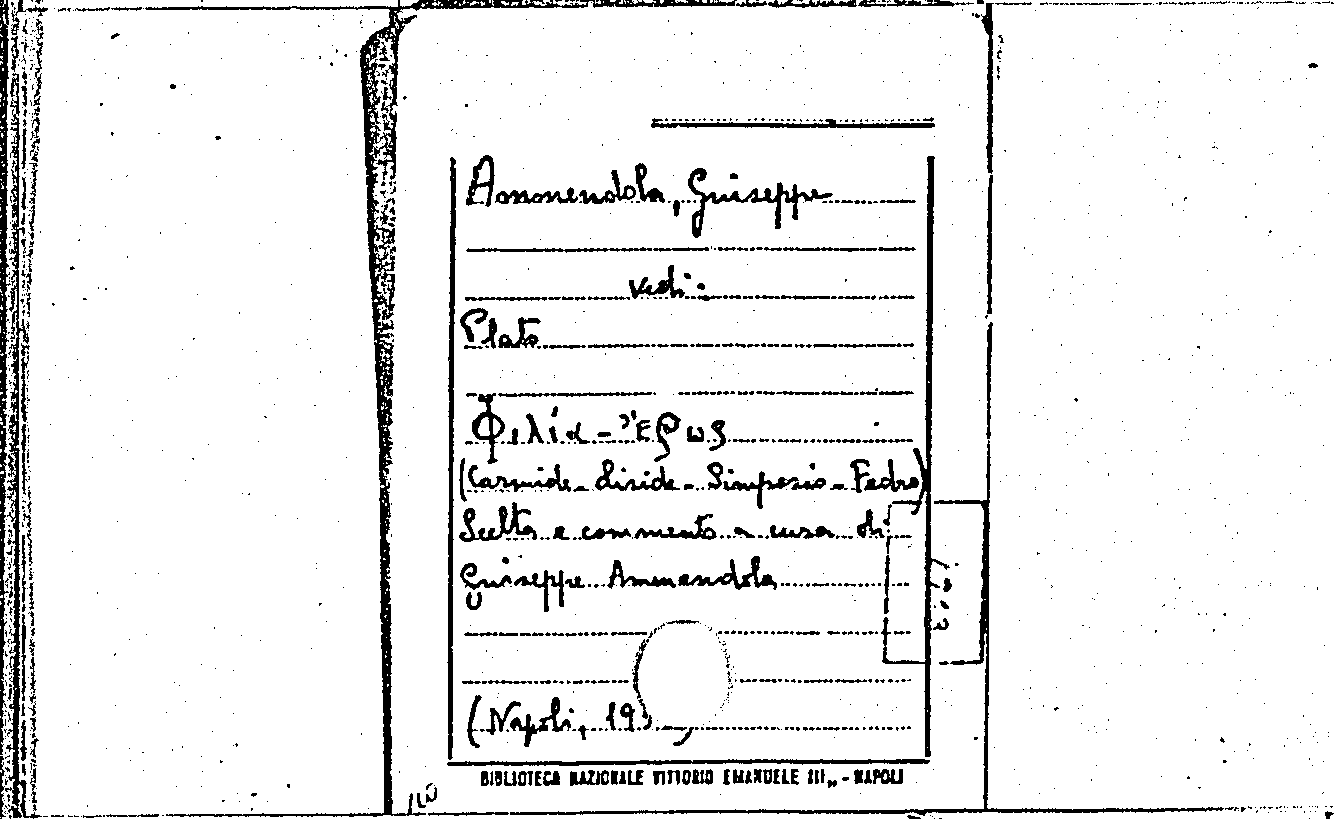 Ammendola, Giuseppe
vedi:
Plato
Φιλία - Ἔρως
(Carmide - Liside - Simposio - Fedro)
Scelta e commento a cura di
Giuseppe Ammendola
(Napoli, 193 )
BIBLIOTECA NAZIONALE VITTORIO EMANUELE III„ - NAPOLI